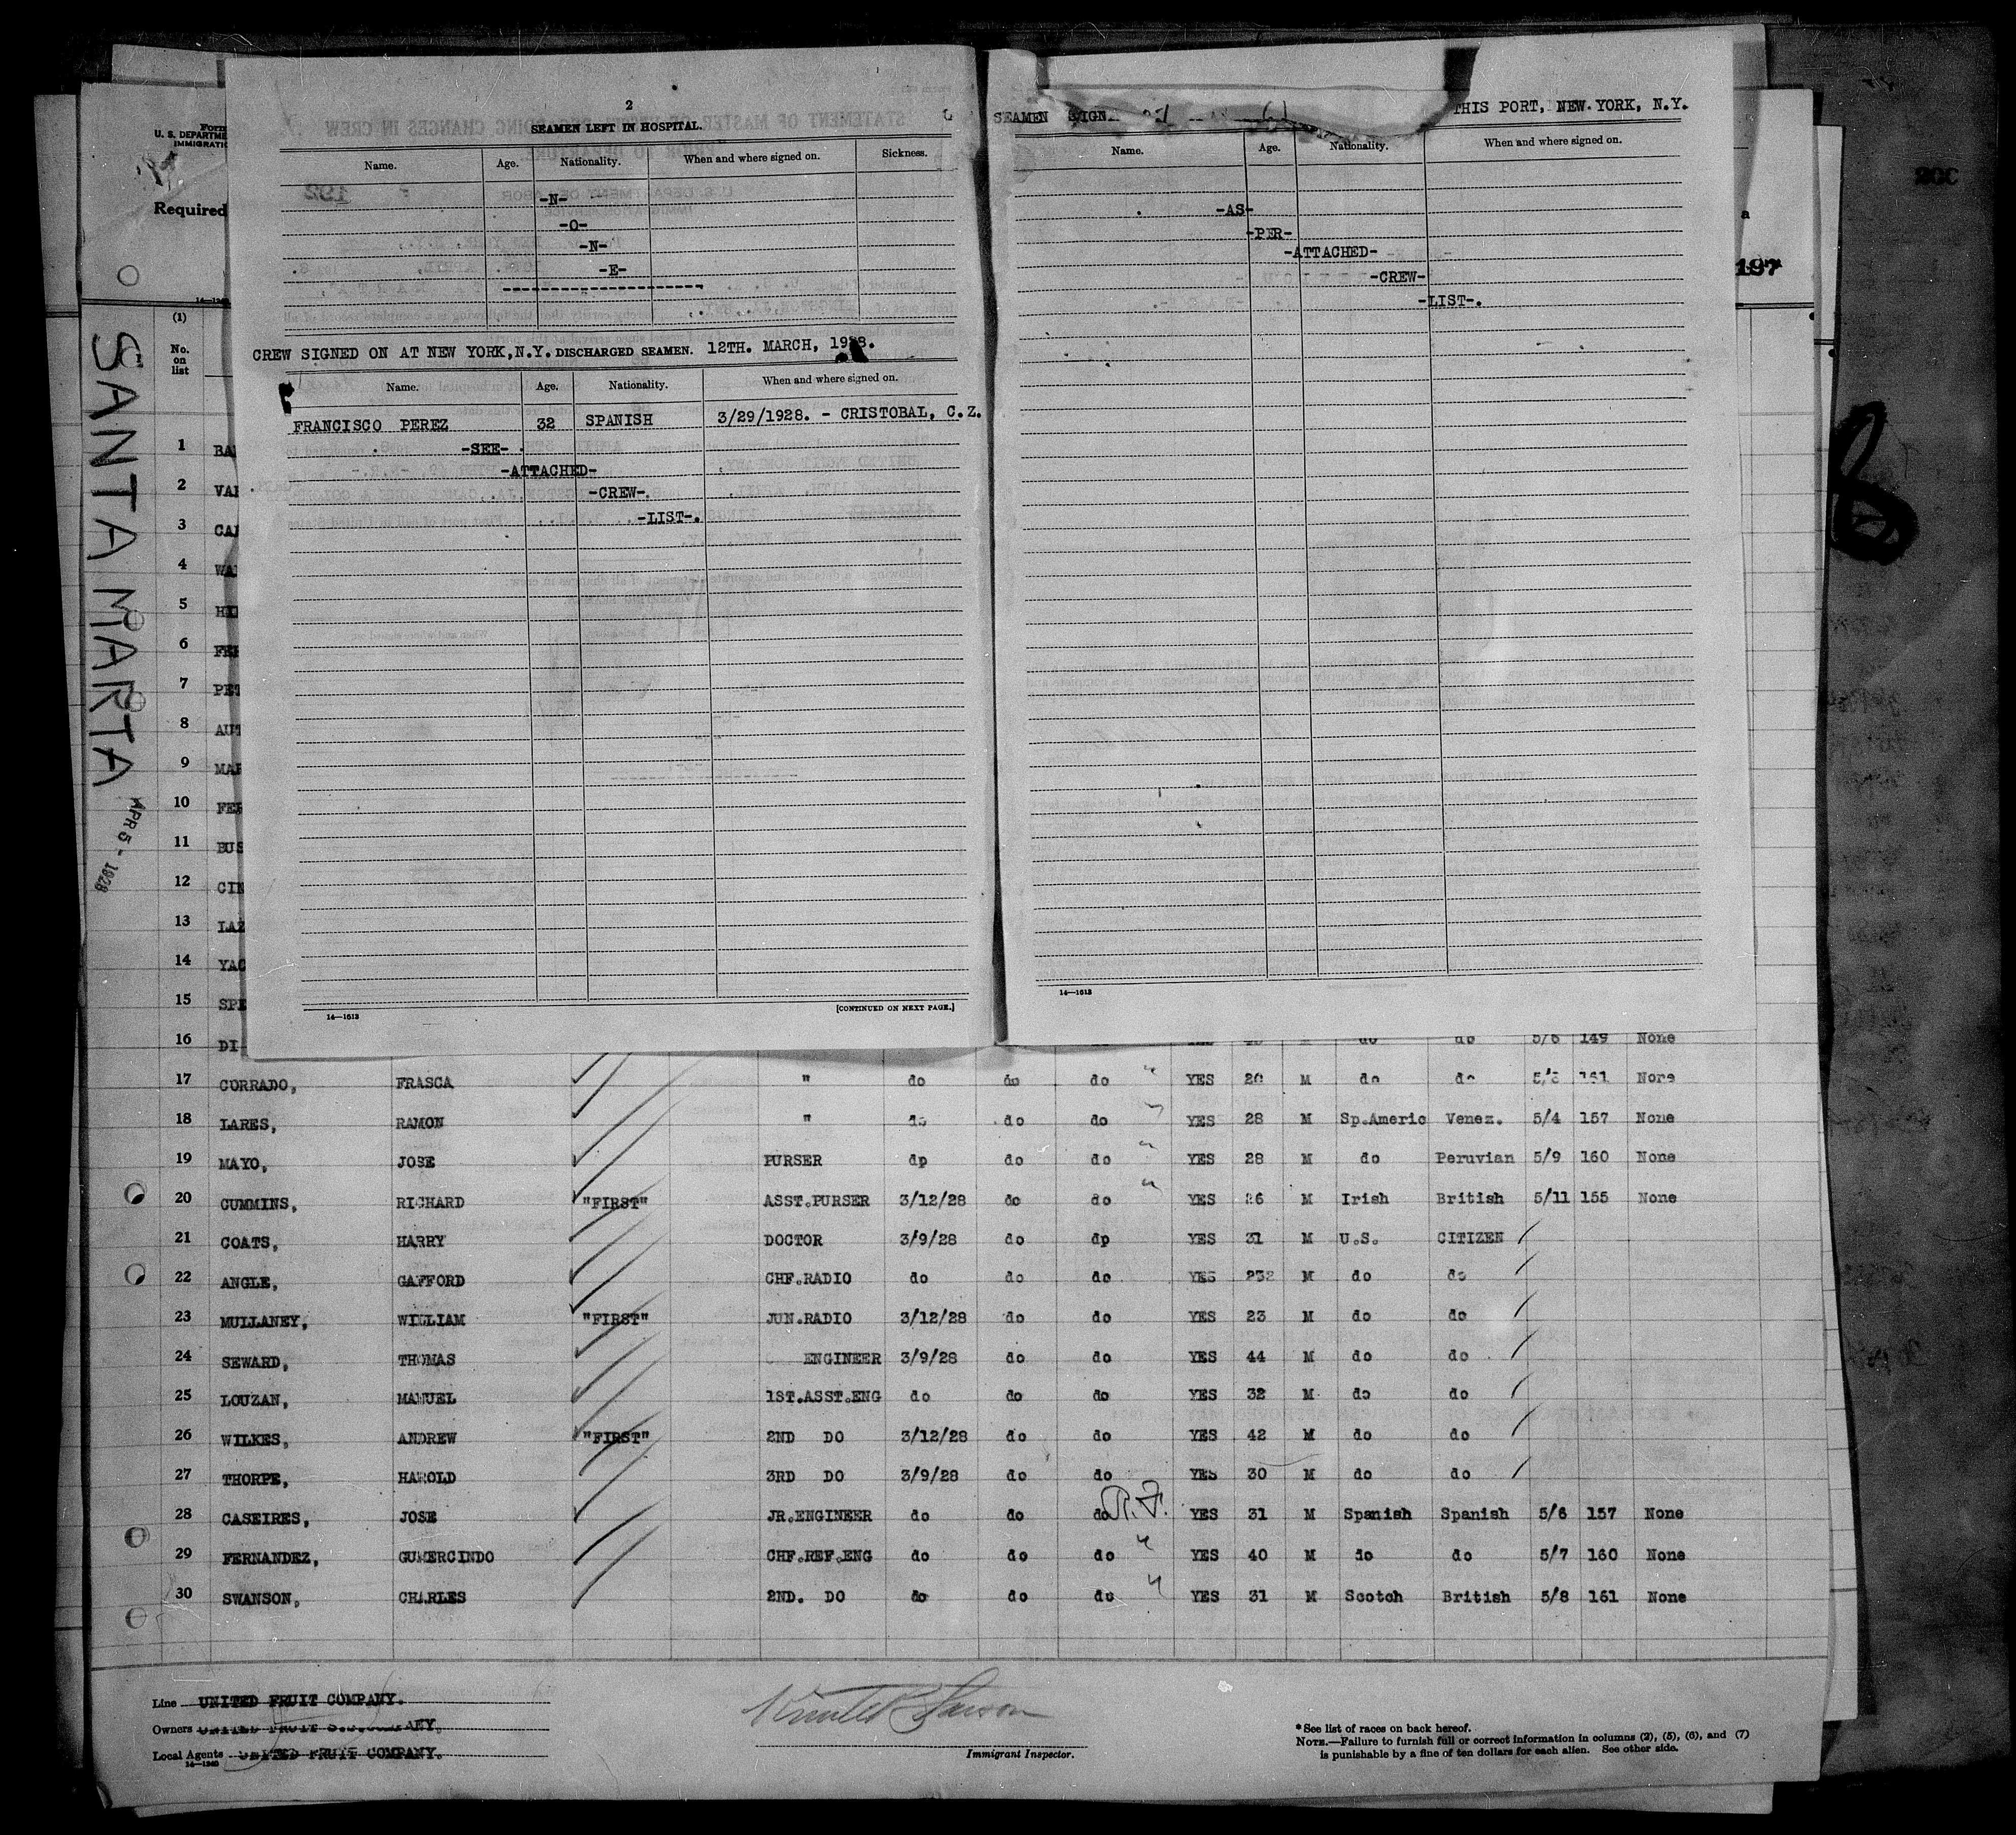 2
SEAMEN LEFT IN HOSPITAL.
Name. Age. Nationality. When and where signed on. Sickness.
-N-
-O-
-N-
-E-
CREW SIGNED ON AT NEW YORK, N.Y. DISCHARGED SEAMEN. 12TH. MARCH, 1928.
Name. Age. Nationality. When and where signed on.
FRANCISCO PEREZ 32 SPANISH 3/29/1928. - CRISTOBAL, C.Z.
-SEE-
-ATTACHED-
-CREW-
-LIST-.
14—1613 [CONTINUED ON NEXT PAGE.]
SEAMEN THIS PORT, NEW YORK, N.Y.
Name. Age. Nationality. When and where signed on.
-AS-
-PER-
-ATTACHED-
-CREW-
-LIST-.
14—1613
Form
U. S. DEPARTME
IMMIGRATIO
Required
197
200
SANTA MARTA
APR 5 - 1928
(1)
No. on list
1 BA
2 VA
3 CA
4 WA
5 HI
6 FE
7 PE
8 AU
9 MA
10 FE
11 BUS
12 CI
13 LA
14 YA
15 SP
16 DI M do do 5/6 149 None
17 CORRADO, FRASCA " do do do " YES 2 M do do 161 None
18 LARES, RAMON " do do do " YES 28 M Sp.Americ Venez. 5/4 157 None
19 MAYO, JOSE PURSER dp do do " YES 28 M do Peruvian 5/9 160 None
20 CUMMINS, RICHARD "FIRST" ASST.PURSER 3/12/28 do do " YES 26 M Irish British 5/11 155 None
21 COATS, HARRY DOCTOR 3/9/28 do dp YES 31 M U.S. CITIZEN
22 ANGLE, GAFFORD CHF.RADIO do do do YES 232 M do do
23 MULLANEY, WILLIAM "FIRST" JUN.RADIO 3/12/28 do do YES 23 M do do
24 SEWARD, THOMAS ENGINEER 3/9/28 do do YES 44 M do do
25 LOUZAN, MANUEL 1ST.ASST.ENG do do do YES 32 M do do
26 WILKES, ANDREW "FIRST" 2ND DO 3/12/28 do do YES 42 M do do
27 THORPE, HAROLD 3RD DO 3/9/28 do do YES 30 M do do
28 CASEIRES, JOSE JR.ENGINEER do do do YES 31 M Spanish Spanish 5/6 157 None
29 FERNANDEZ, GUMERCINDO CHF.REF.ENG do do do " YES 40 M do do 5/7 160 None
30 SWANSON, CHARLES 2ND. DO do do do " YES 31 M Scotch British 5/8 161 None
Line UNITED FRUIT COMPANY.
Owners UNITED FRUIT S.S.COMPANY.
Local Agents UNITED FRUIT COMPANY.
14—1240
Immigrant Inspector.
* See list of races on back hereof.
NOTE.—Failure to furnish full or correct information in columns (2), (5), (6), and (7)
is punishable by a fine of ten dollars for each alien. See other side.